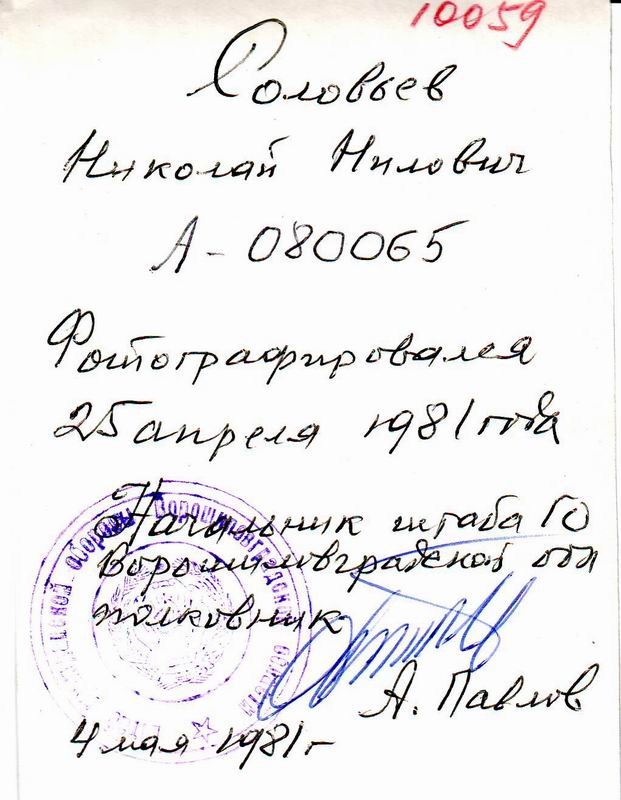 10059
Соловьев
Николай Нилович
А-080065
Фотографировался
25 апреля 1981 года
Начальник штаба ГО
Ворошиловградской обл
полковник
А. Павлов
4 мая 1981 г
обороны Ворошиловградской области